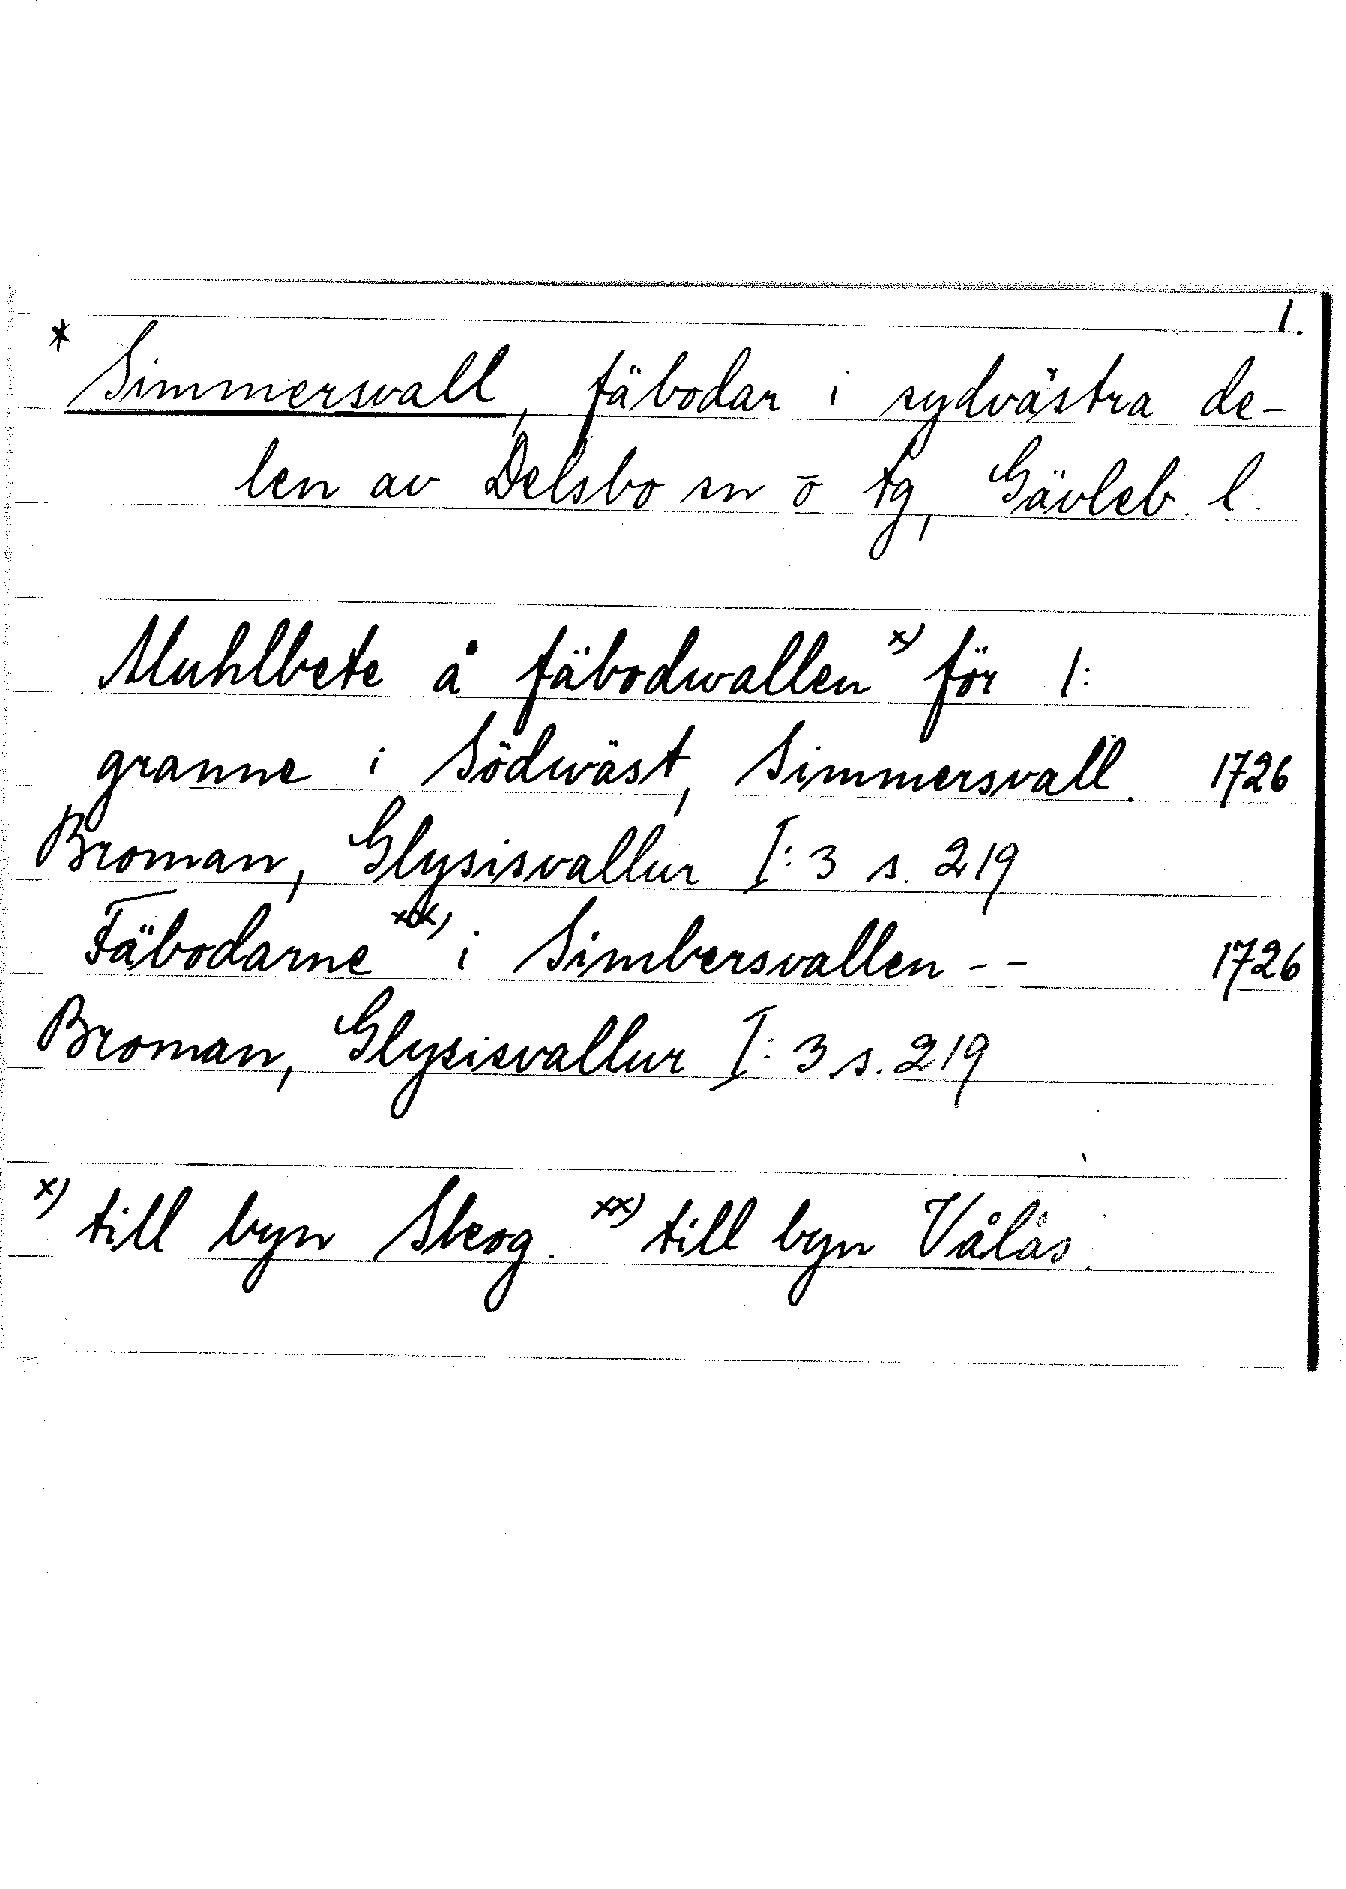 1.
* Simmersvall, fäbodar i sydvästra de-
len av Delsbo sn o tg, Gävleb. l.
Muhlbete å fäbodwallen x) för 1:
granne i Södwäst, Simmersvall. 1726
Broman, Glysisvallur I:3 s. 219
Fäbodarne xx) i Simbersvallen - - 1726
Broman, Glysisvallur I:3 s. 219
x) till byn Skog. xx) till byn Vålås.